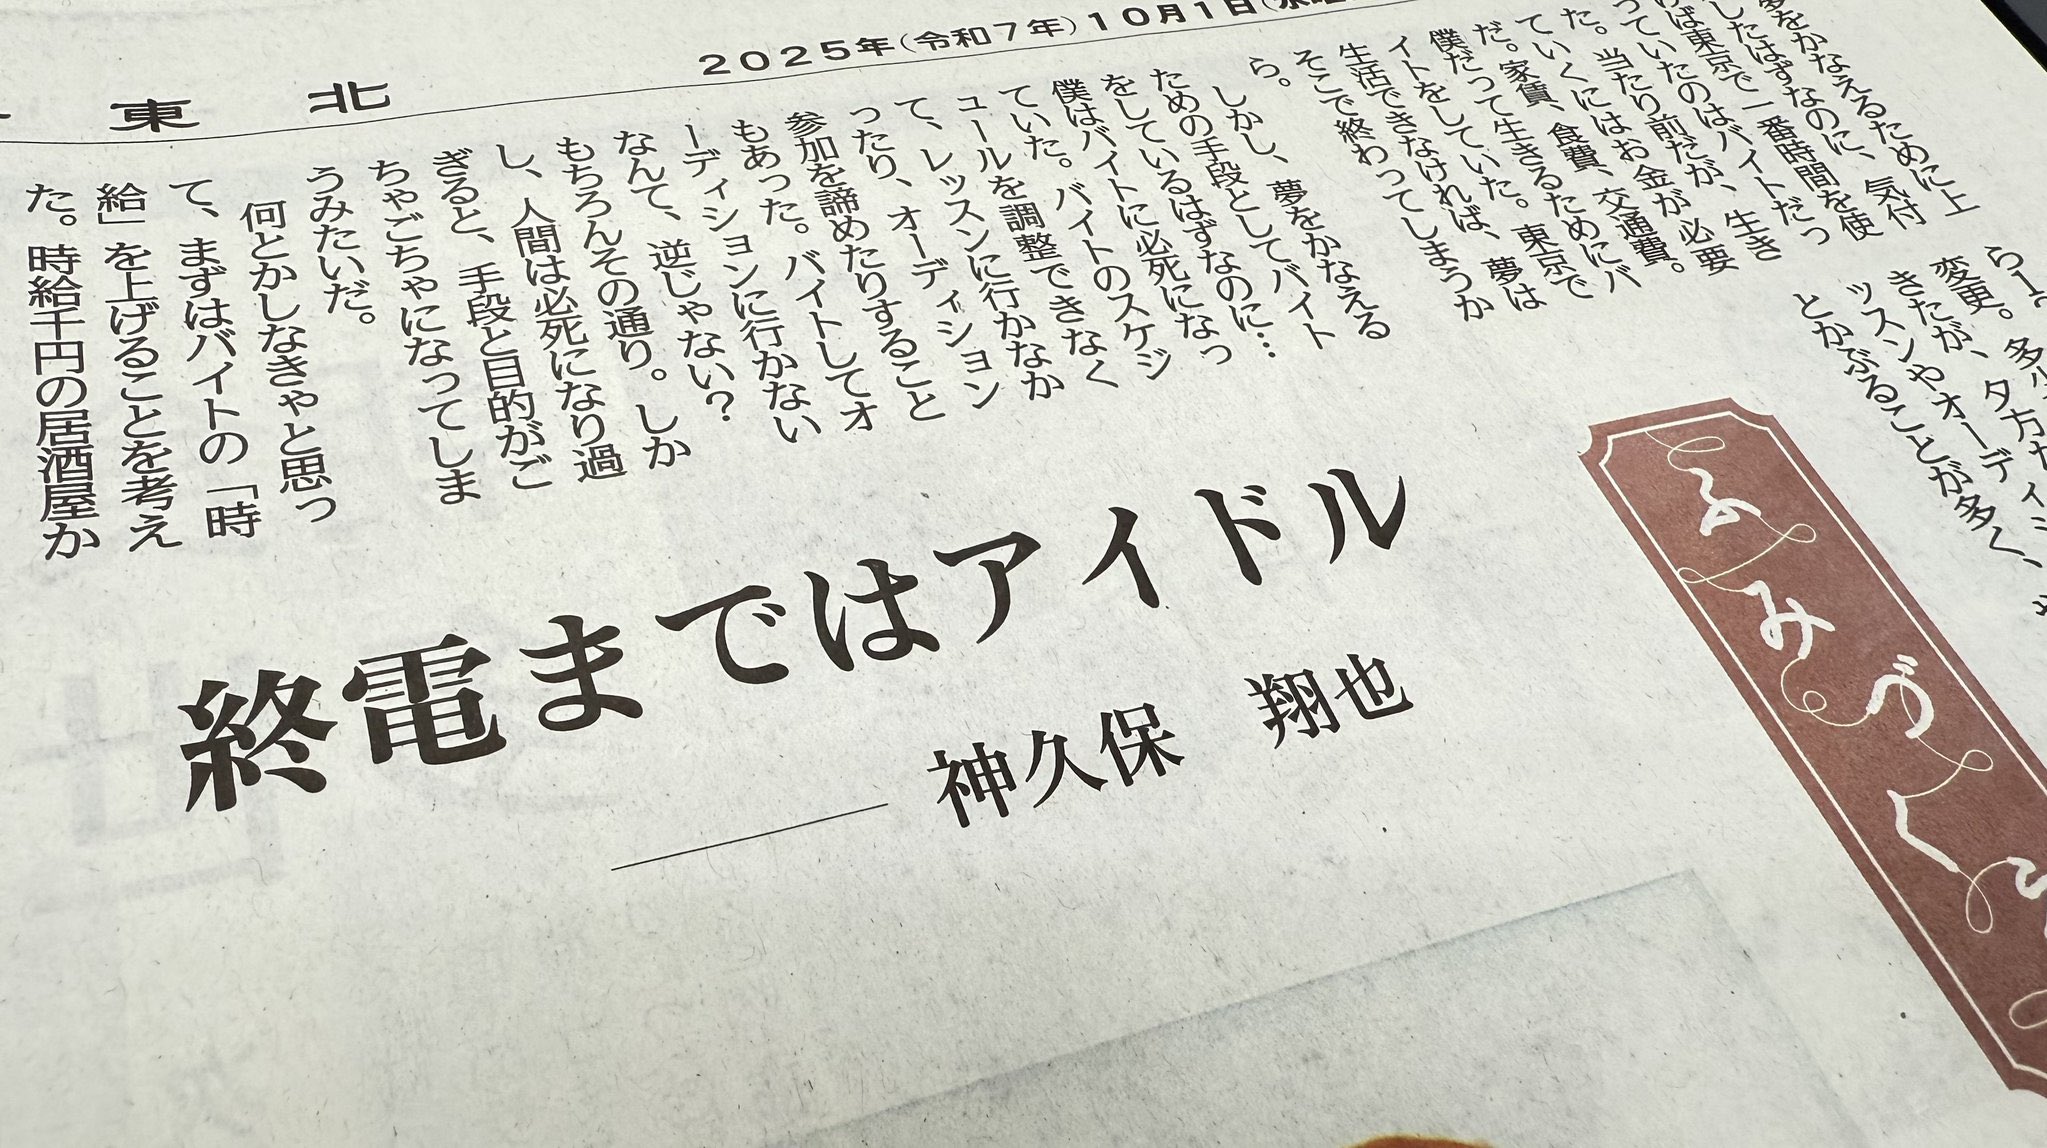 東北
2025年(令和7年)10月1日(水曜
をかなえるために上
したはずなのに、気付
けば東京で一番時間を使
っていたのはバイトだっ
た。当たり前だが、生き
ていくにはお金が必要
だ。家賃、食費、交通費。
僕だって生きるためにバ
イトをしていた。東京で
生活できなければ、夢は
そこで終わってしまうか
ら。
しかし、夢をかなえる
ための手段としてバイト
をしているはずなのに…
僕はバイトに必死になっ
ていた。バイトのスケジ
ュールを調整できなく
て、レッスンに行かなか
ったり、オーディション
参加を諦めたりすること
もあった。バイトしてオ
ーディションに行かない
なんて、逆じゃない？
もちろんその通り。しか
し、人間は必死になり過
ぎると、手段と目的がご
ちゃごちゃになってしま
うみたいだ。
何とかしなきゃと思っ
て、まずはバイトの「時
給」を上げることを考え
た。時給千円の居酒屋か
ら1
変更。多
きたが、夕方
ッスンやオーディシ
とかぶることが多く、
終電まではアイドル
神久保　翔也
ふみづく